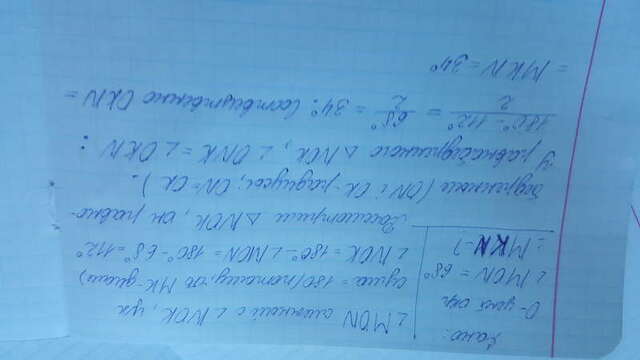 Дано:
О-цент окр
∠MON = 68°
∠MKN-?
∠MON смежный с ∠NOK, их
сума = 180 (потому, что MK-диам)
∠NOK = 180° - ∠MON = 180° - 68° = 112°
Рассмотрим △NOK, он равно-
бедренные (ON і OK-радиусы; ON=OK).
У равнобедренного △NOK, ∠ONK = ∠OKN :
180° - 112° / 2 = 68° / 2 = 34°. Соотвецтвенно OKN =
= MKN = 34°